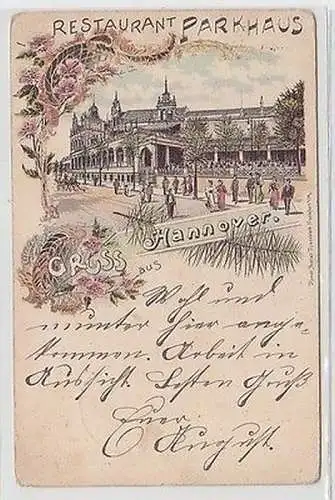 RESTAURANT PARKHAUS
Hannover.
GRUSS AUS
Wohl und
munter hier ange-
kommen. Arbeit in
Aussicht. Besten Gruß
Euer
August.